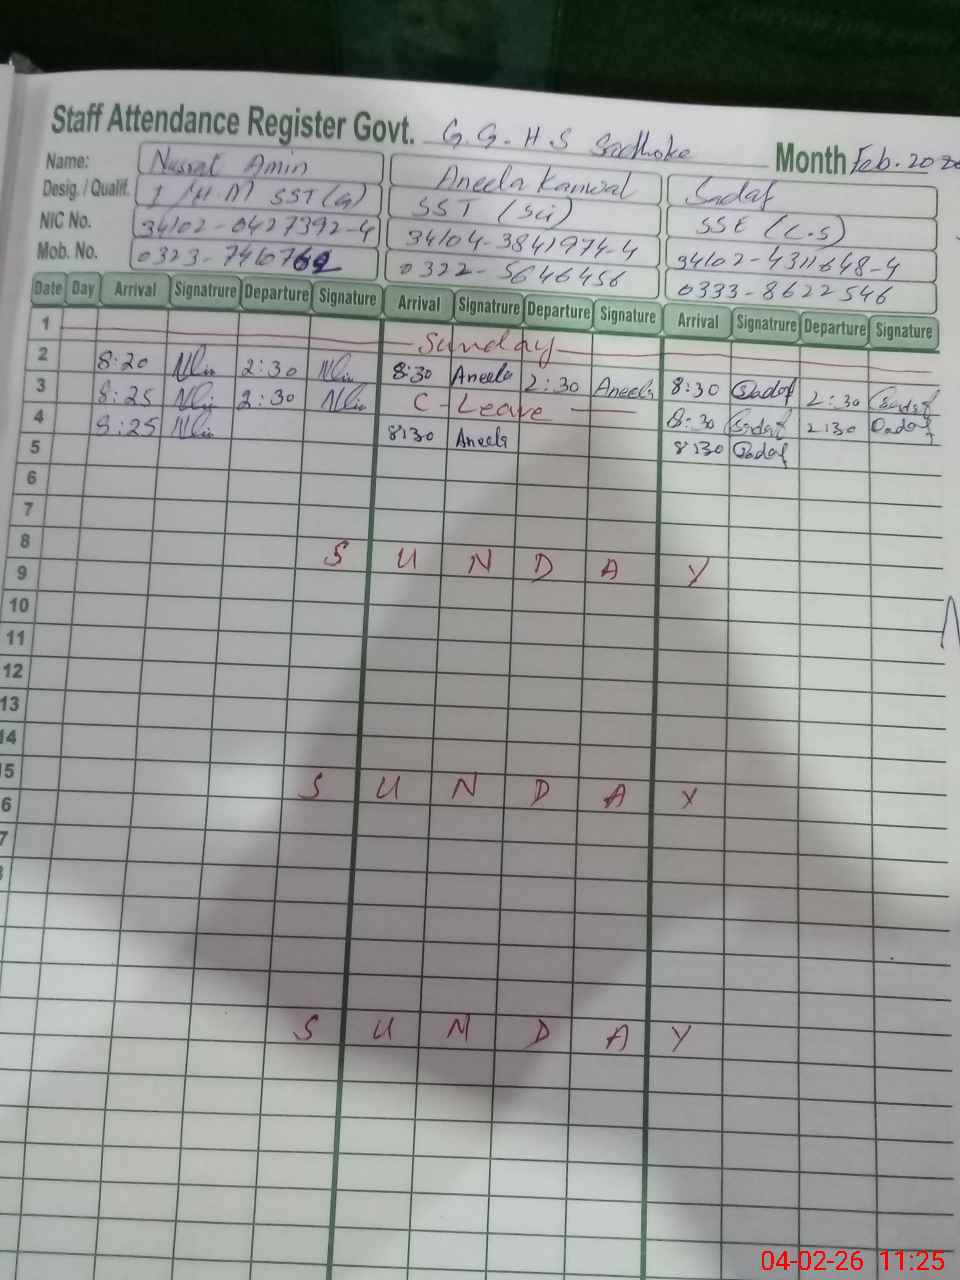 Staff Attendance Register Govt. G.G.H.S Sadhoke Month Feb. 20
Name: Nusrat Amin Aneela Kanwal Sadaf
Desig. / Qualif. I/H.M SST(G) SST (Sci) SSE (C.S)
NIC No. 34102-0427392-4 34104-3841974-4 34102-4311648-4
Mob. No. 0323-7410762 0322-5646456 0333-8622546
Date Day Arrival Signatrure Departure Signature Arrival Signatrure Departure Signature Arrival Signatrure Departure Signature
1 Sunday
2 8:20 2:30 8:30 Aneela 2:30 Aneela 8:30 Sadaf 2:30 Sadaf
3 8:25 2:30 C-Leave 8:30 Sadaf 2:30 Sadaf
4 8:25 8:30 Aneela 8:30 Sadaf
5
6
7
8 S U N D A Y
9
10
11
12
13
14
15 S U N D A Y
6
7
S U N D A Y
04-02-26 11:25